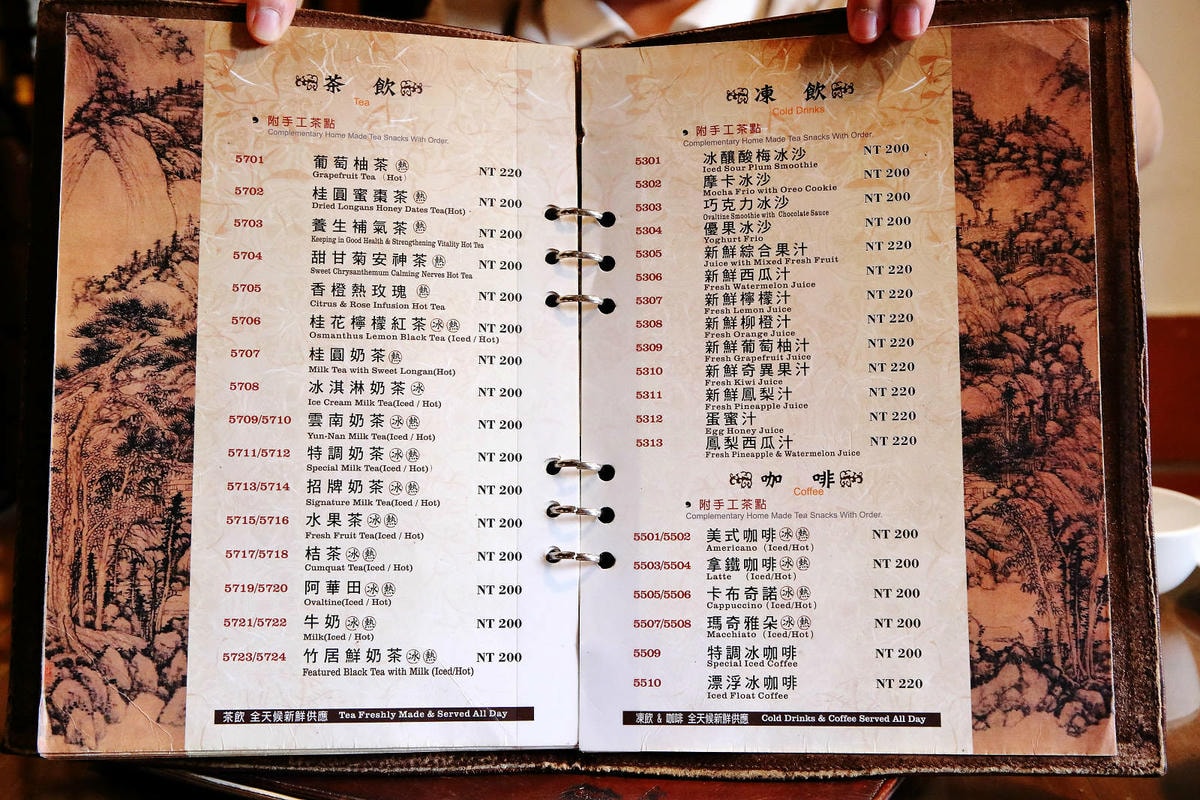 茶 飲
Tea
附手工茶點
Complementary Home Made Tea Snacks With Order.
5701 葡萄柚茶 熱 NT 220
Grapefruit Tea (Hot)
5702 桂圓蜜棗茶 熱 NT 200
Dried Longans Honey Dates Tea(Hot)
5703 養生補氣茶 熱 NT 200
Keeping in Good Health & Strengthening Vitality Hot Tea
5704 甜甘菊安神茶 熱 NT 200
Sweet Chrysanthemum Calming Nerves Hot Tea
5705 香橙熱玫瑰 熱 NT 200
Citrus & Rose Infusion Hot Tea
5706 桂花檸檬紅茶 冰 熱 NT 200
Osmanthus Lemon Black Tea (Iced / Hot)
5707 桂圓奶茶 熱 NT 200
Milk Tea with Sweet Longan(Hot)
5708 冰淇淋奶茶 冰 NT 200
Ice Cream Milk Tea(Iced / Hot)
5709/5710 雲南奶茶 冰 熱 NT 200
Yun-Nan Milk Tea(Iced / Hot)
5711/5712 特調奶茶 冰 熱 NT 200
Special Milk Tea(Iced / Hot)
5713/5714 招牌奶茶 冰 熱 NT 200
Signature Milk Tea(Iced / Hot)
5715/5716 水果茶 冰 熱 NT 200
Fresh Fruit Tea(Iced / Hot)
5717/5718 桔茶 冰 熱 NT 200
Cumquat Tea(Iced / Hot)
5719/5720 阿華田 冰 熱 NT 200
Ovaltine(Iced / Hot)
5721/5722 牛奶 冰 熱 NT 200
Milk(Iced / Hot)
5723/5724 竹居鮮奶茶 冰 熱 NT 200
Featured Black Tea with Milk (Iced/Hot)
茶飲 全天候新鮮供應 Tea Freshly Made & Served All Day
凍 飲
Cold Drinks
附手工茶點
Complementary Home Made Tea Snacks With Order.
5301 冰釀酸梅冰沙 NT 200
Iced Sour Plum Smoothie
5302 摩卡冰沙 NT 200
Mocha Frio with Oreo Cookie
5303 巧克力冰沙 NT 200
Ovaltine Smoothie with Chocolate Sauce
5304 優果冰沙 NT 200
Yoghurt Frio
5305 新鮮綜合果汁 NT 220
Juice with Mixed Fresh Fruit
5306 新鮮西瓜汁 NT 220
Fresh Watermelon Juice
5307 新鮮檸檬汁 NT 220
Fresh Lemon Juice
5308 新鮮柳橙汁 NT 220
Fresh Orange Juice
5309 新鮮葡萄柚汁 NT 220
Fresh Grapefruit Juice
5310 新鮮奇異果汁 NT 220
Fresh Kiwi Juice
5311 新鮮鳳梨汁 NT 220
Fresh Pineapple Juice
5312 蛋蜜汁 NT 220
Egg Honey Juice
5313 鳳梨西瓜汁 NT 220
Fresh Pineapple & Watermelon Juice
咖 啡
Coffee
附手工茶點
Complementary Home Made Tea Snacks With Order.
5501/5502 美式咖啡 冰 熱 NT 200
Americano (Iced/Hot)
5503/5504 拿鐵咖啡 冰 熱 NT 200
Latte (Iced/Hot)
5505/5506 卡布奇諾 冰 熱 NT 200
Cappuccino (Iced/Hot)
5507/5508 瑪奇雅朵 冰 熱 NT 200
Macchiato (Iced/Hot)
5509 特調冰咖啡 NT 200
Special Iced Coffee
5510 漂浮冰咖啡 NT 220
Iced Float Coffee
凍飲 & 咖啡 全天候新鮮供應 Cold Drinks & Coffee Served All Day